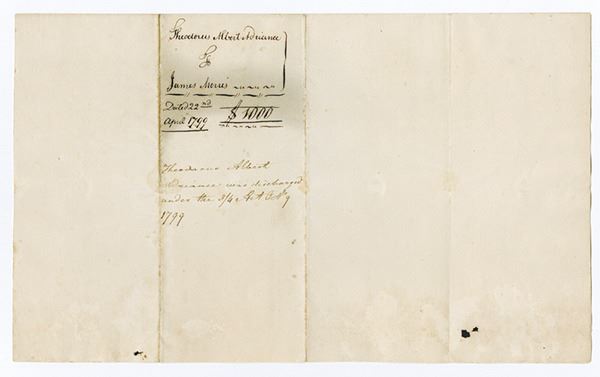 Theodorus Albert Adriance
To
James Morris
Dated 22nd
April 1799
$ 1000
Theodorus Albert
Adriance was discharged
under the 3/4 Act
1799